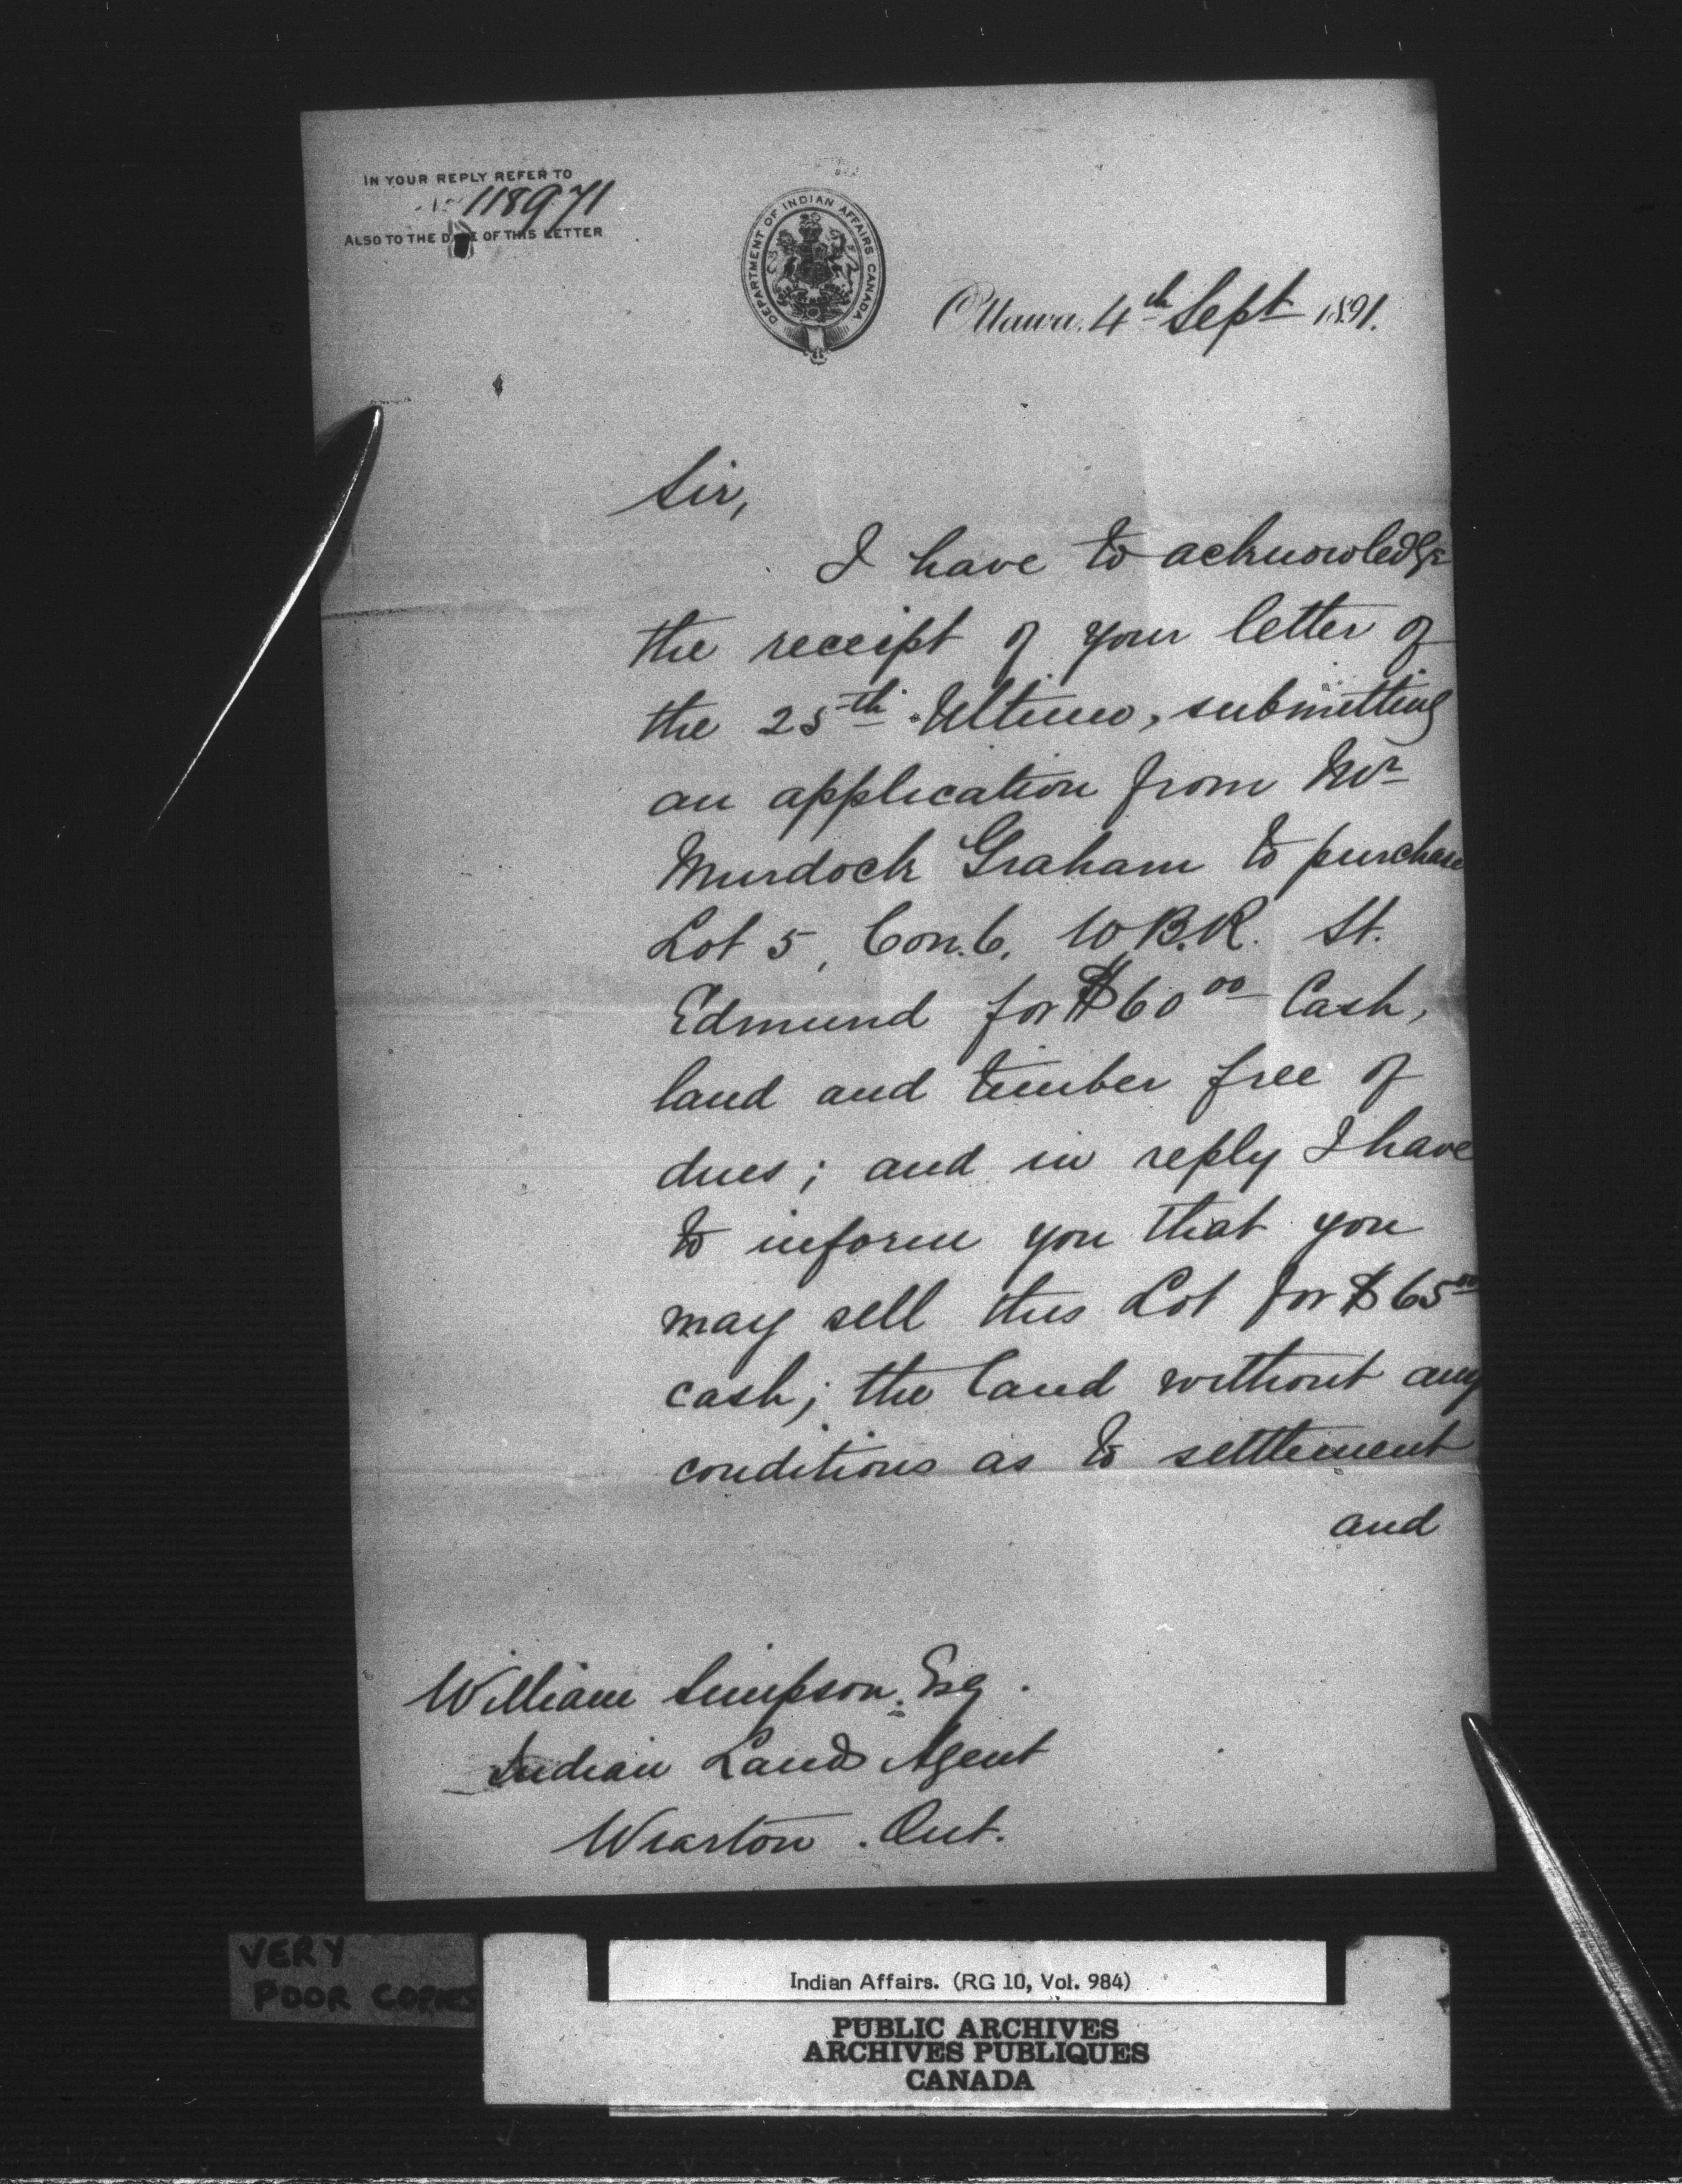 IN YOUR REPLY REFER TO
No 118971
ALSO TO THE DATE OF THIS LETTER
DEPARTMENT OF INDIAN AFFAIRS CANADA
Ottawa, 4th Sept 1891.
Sir,
I have to acknowledge
the receipt of your letter of
the 25th Ultimo, submitting
an application from Mr
Murdock Graham to purchase
Lot 5, Con. 6, W.B.R. St.
Edmund for $60 00 Cash,
land and timber free of
dues; and in reply I have
to inform you that you
may sell this Lot for $65 00
cash; the land without any
conditions as to settlement
and
William Simpson, Esq.
Indian Land Agent
Wiarton. Ont.
VERY
POOR COPIES
Indian Affairs. (RG 10, Vol. 984)
PUBLIC ARCHIVES
ARCHIVES PUBLIQUES
CANADA